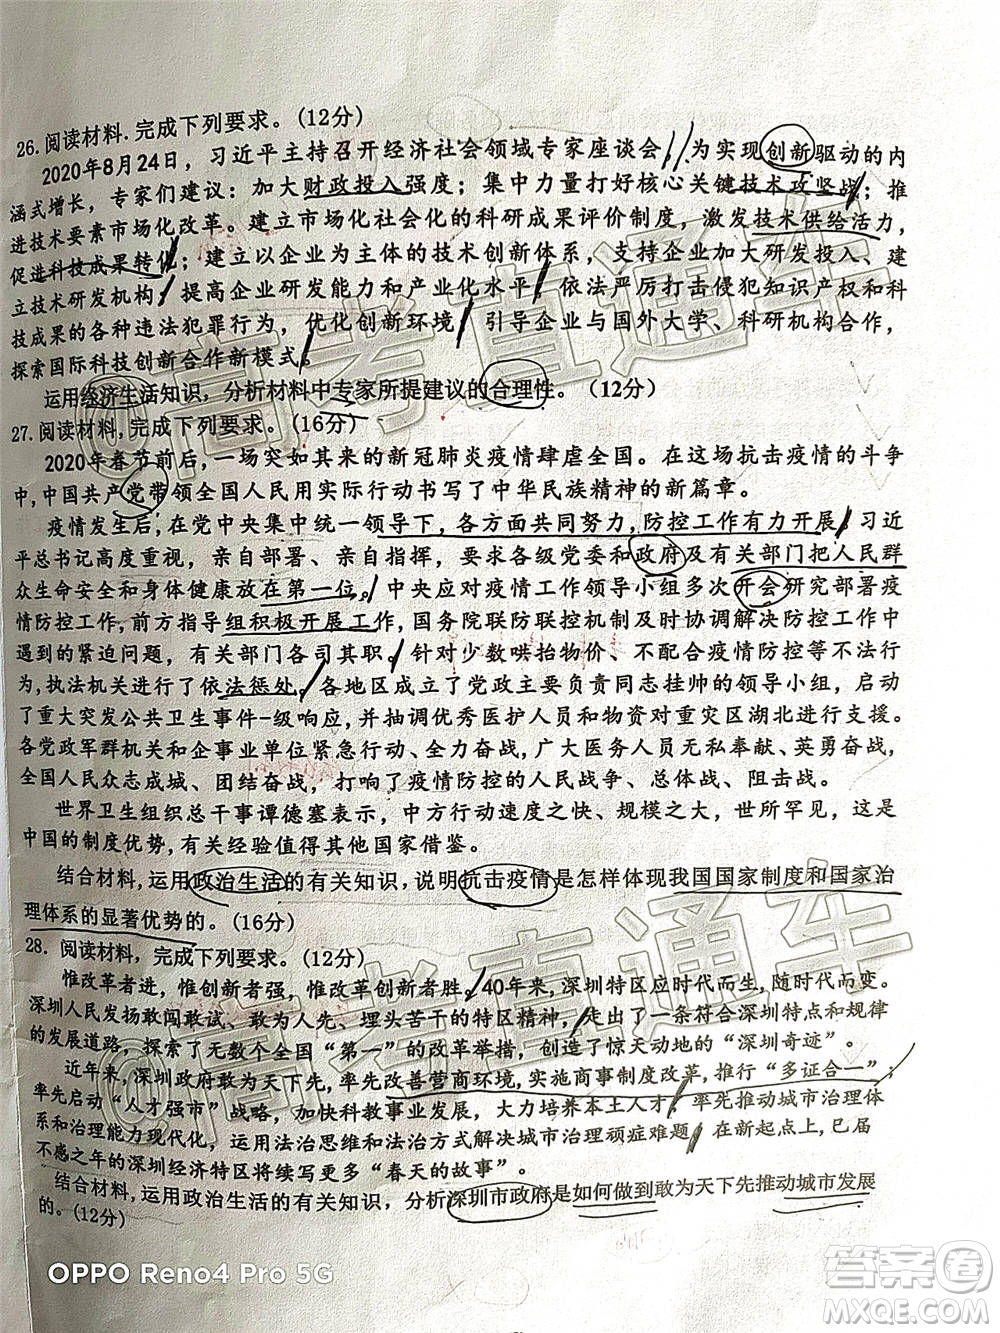 26. 阅读材料.完成下列要求。(12分)
2020年8月24日，习近平主持召开经济社会领域专家座谈会。为实现创新驱动的内
涵式增长，专家们建议：加大财政投入强度；集中力量打好核心关键技术攻坚战；推
进技术要素市场化改革。建立市场化社会化的科研成果评价制度，激发技术供给活力，
促进科技成果转化；建立以企业为主体的技术创新体系，支持企业加大研发投入、建
立技术研发机构，提高企业研发能力和产业化水平；依法严厉打击侵犯知识产权和科
技成果的各种违法犯罪行为，优化创新环境；引导企业与国外大学、科研机构合作，
探索国际科技创新合作新模式。
运用经济生活知识，分析材料中专家所提建议的合理性。（12分）
27. 阅读材料,完成下列要求。(16分)
2020年春节前后，一场突如其来的新冠肺炎疫情肆虐全国。在这场抗击疫情的斗争
中,中国共产党带领全国人民用实际行动书写了中华民族精神的新篇章。
疫情发生后,在党中央集中统一领导下,各方面共同努力,防控工作有力开展,习近
平总书记高度重视，亲自部署、亲自指挥，要求各级党委和政府及有关部门把人民群
众生命安全和身体健康放在第一位。中央应对疫情工作领导小组多次开会研究部署疫
情防控工作,前方指导组积极开展工作，国务院联防联控机制及时协调解决防控工作中
遇到的紧迫问题，有关部门各司其职。针对少数哄抬物价、不配合疫情防控等不法行
为,执法机关进行了依法惩处。各地区成立了党政主要负责同志挂帅的领导小组，启动
了重大突发公共卫生事件-级响应，并抽调优秀医护人员和物资对重灾区湖北进行支援。
各党政军群机关和企事业单位紧急行动、全力奋战，广大医务人员无私奉献、英勇奋战，
全国人民众志成城、团结奋战，打响了疫情防控的人民战争、总体战、阻击战。
世界卫生组织总干事谭德塞表示，中方行动速度之快、规模之大，世所罕见，这是
中国的制度优势，有关经验值得其他国家借鉴。
结合材料,运用政治生活的有关知识，说明抗击疫情是怎样体现我国国家制度和国家治
理体系的显著优势的。(16分)
28. 阅读材料，完成下列要求。(12分)
惟改革者进，惟创新者强，惟改革创新者胜。40年来,深圳特区应时代而生,随时代而变。
深圳人民发扬敢闯敢试、敢为人先、埋头苦干的特区精神，走出了一条符合深圳特点和规律
的发展道路，探索了无数个全国“第一”的改革举措，创造了惊天动地的“深圳奇迹”。
近年来,深圳政府敢为天下先,率先改善营商环境,实施商事制度改革,推行“多证合一”；
率先启动“人才强市”战略，加快科教事业发展，大力培养本土人才；率先推动治理体
系和治理能力现代化，运用法治思维和法治方式解决城市治理顽症难题。在新起点上,已届
不惑之年的深圳经济特区将续写更多“春天的故事”。
结合材料,运用政治生活的有关知识，分析深圳市政府是如何做到敢为天下先推动城市发展
的。(12分)
@高考直通车
@高考直通车
OPPO Reno4 Pro 5G
答案圈
MXQE.COM